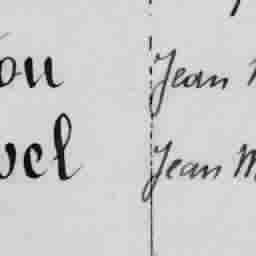 ou Jean
vel Jean M